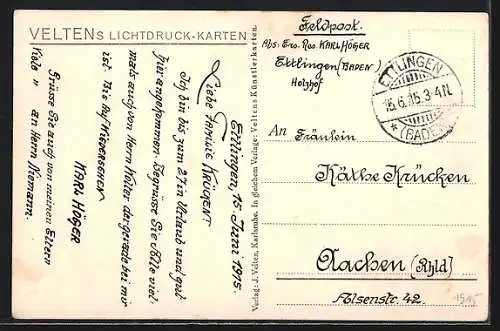 VELTENs LICHTDRUCK-KARTEN
Ettlingen 15 Juni 1915.
Liebe Familie KRÜCKEN!
Ich bin bis zum 27 in Urlaub und gut
hier angekommen. Begrüsse Sie Alle viel
mals auch von Herrn Höfler der gerade bei mir
ist. Bis Auf WIEDERSEHEN
KARL HÖGER
Grüsse Sie auch von meinen Eltern
Viele " an Herrn Niemann.
Verlag: J. Velten, Karlsruhe. In gleichem Verlage: Veltens Künstlerkarten.
Feldpost.
Abs: Ers. Res. KARL HÖGER
Ettlingen (BADEN)
Holzhof
ETTLINGEN
15.6.15.3-4N.
* (BADEN)
An Fräulein
Käthe Krücken
Aachen (Rhld)
Alsenstr. 42.
1915